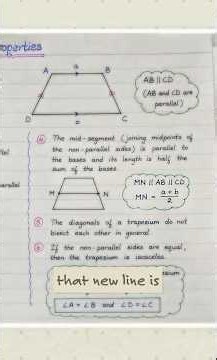 operties
a
A B
AB || CD
(AB and CD are
parallel)
D C
b
④ The mid-segment (joining midpoints of
the non-parallel sides) is parallel to
the bases and its length is half the
sum of the bases
M N
MN || AB || CD
MN = a + b / 2
⑤ The diagonals of a trapezium do not
bisect each other in general
⑥ If the non-parallel sides are equal,
then the trapezium is isosceles.
that new line is
∠A = ∠B and ∠D = ∠C